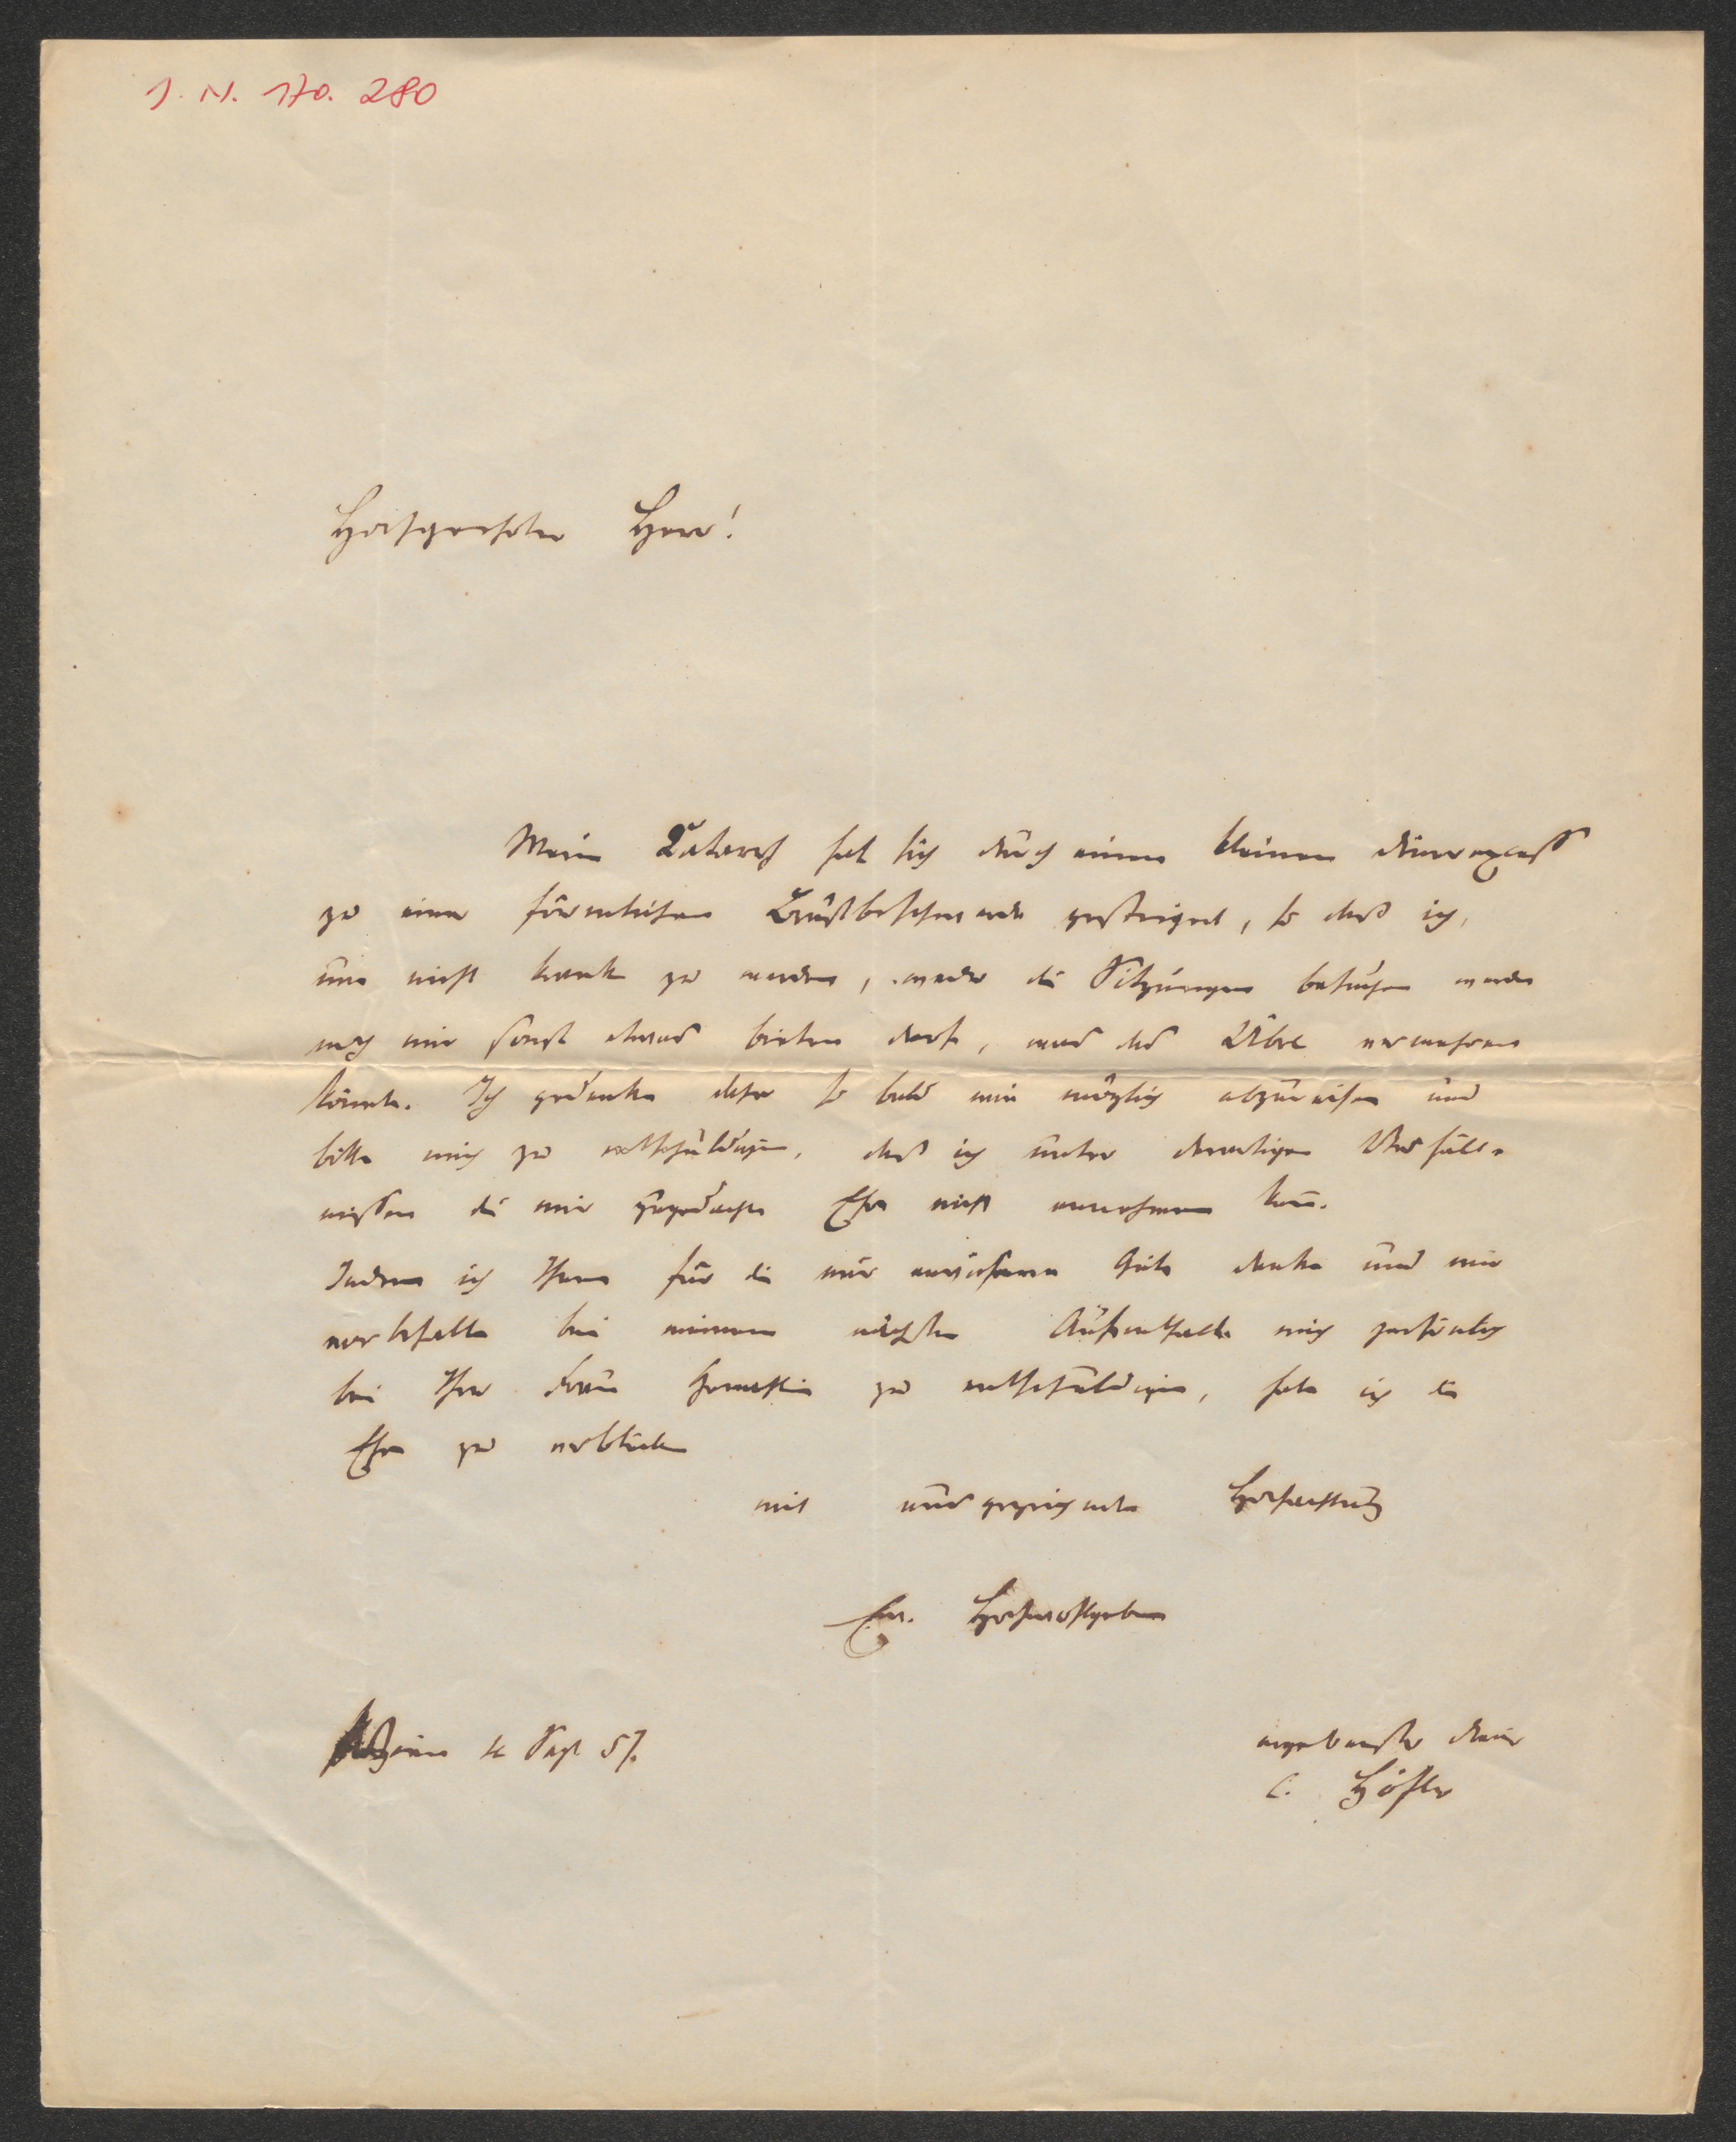 J. N. 170.280
Hochgeehrter Herr!
Mein Catarrh hat sich durch einen kleinen Dinerexceß
zu einer förmlichen Brustbeschwerde gesteigert, so daß ich,
um nicht krank zu werden, weder die Sitzungen besuchen werde
noch mir sonst etwas bieten darf, was das Übel vermehren
könnte. Ich gedenke daher so bald wie möglich abzureisen und
bitte mich zu entschuldigen, daß ich unter derartigen Verhält-
nissen die mir zugedachte Ehre nicht annehmen kann.
Indem ich Ihnen für die mir erwiesene Güte danke und mir
vorbehalte bei meinem nächsten Aufenthalte mich persönlich
bei Ihrer Frau Gemahlin zu entschuldigen, habe ich die
Ehre zu verbleiben
mit ausgezeichneter Hochachtung
Ew. Hochwohlgeboren
Wien Sept 57.
ergebenster Diener
C. Höfler